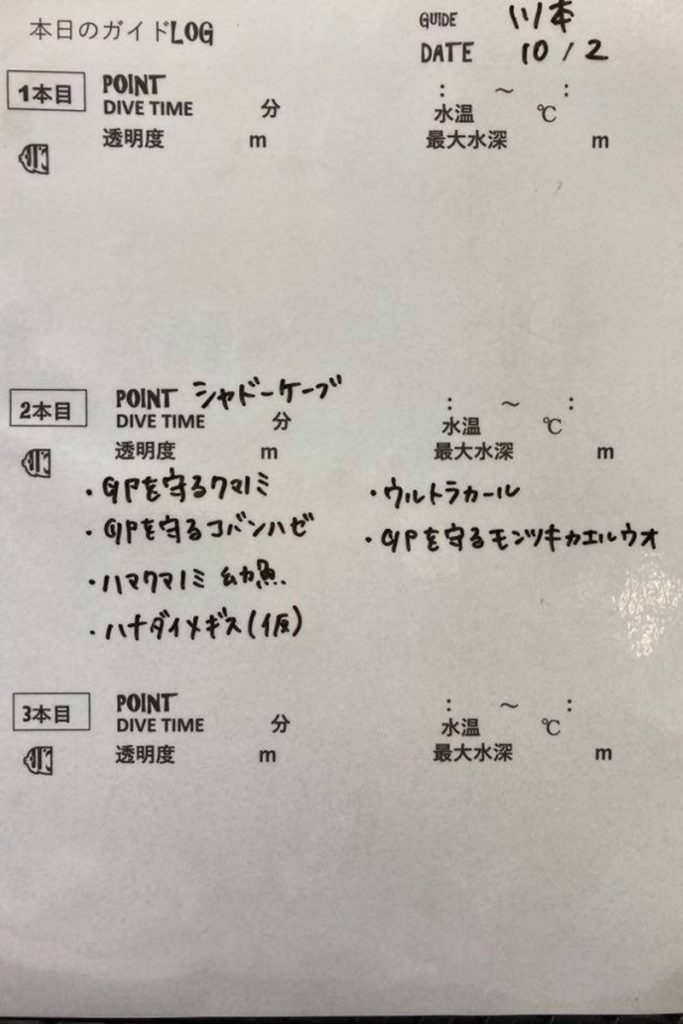 本日のガイドLOG
GUIDE 川本
DATE 10 / 2
1本目 POINT : ～ :
DIVE TIME 分 水温 ℃
透明度 m 最大水深 m
2本目 POINT シャドーケーブ : ～ :
DIVE TIME 分 水温 ℃
透明度 m 最大水深 m
・GPを守るクマノミ ・ウルトラカール
・GPを守るコバンハゼ ・GPを守るモンツキカエルウオ
・ハマクマノミ 幼魚.
・ハナダイメギス(仮)
3本目 POINT : ～ :
DIVE TIME 分 水温 ℃
透明度 m 最大水深 m